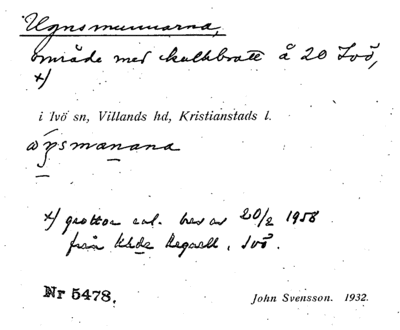 Ugnsmunnarna,
område med kalkbrott å 20 Ivö,
x)
i Ivö sn, Villands hd, Kristianstads l.
x) grottor enl. brev av 20/2 1958
från Ivö.
Nr 5478.
John Svensson. 1932.